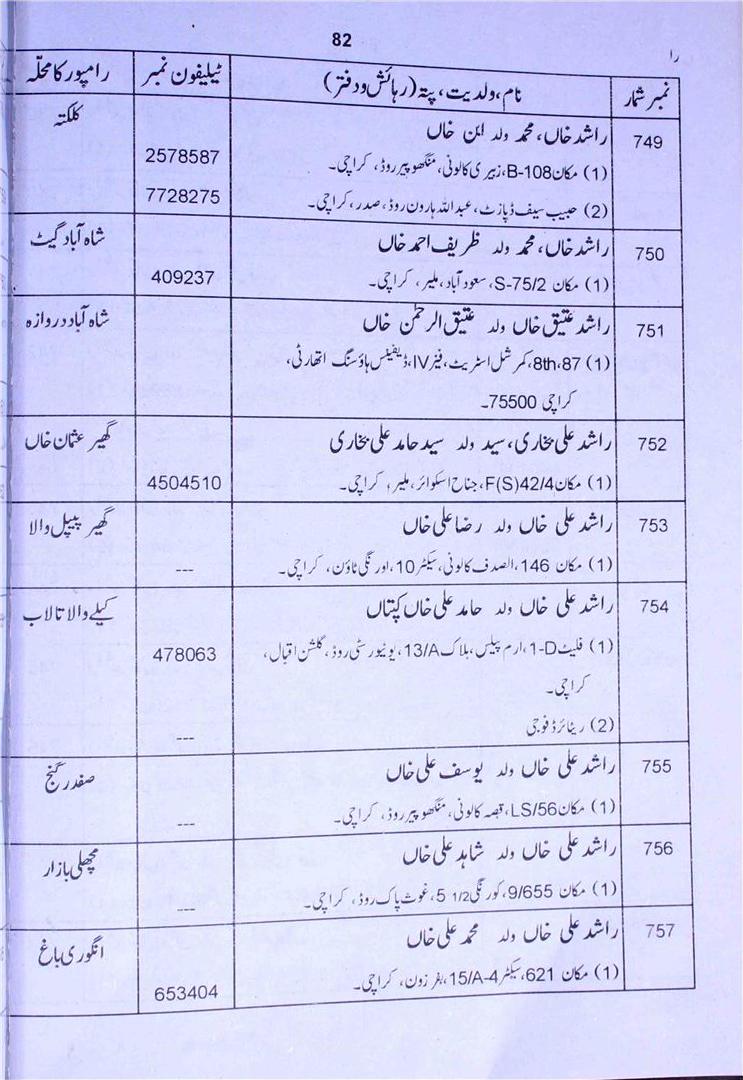 82
را
نمبر شمار	نام، ولدیت، پتہ (رہائش و دفتر)	ٹیلیفون نمبر	رامپور کا محلّہ
749	راشد خاں، محمد ولد ابن خاں	کلکتہ
(1) مکان B-108، زبیری کالونی، منگھوپیر روڈ، کراچی۔	2578587
(2) حبیب سیف ڈپازٹ، عبداللہ ہارون روڈ، صدر، کراچی۔	7728275
750	راشد خاں، محمد ولد ظریف احمد خاں	شاہ آباد گیٹ
(1) مکان S-75/2، سعود آباد، ملیر، کراچی۔	409237
751	راشد عتیق خاں ولد عتیق الرحمٰن خاں	شاہ آباد دروازہ
(1) 87،8th، کمرشل اسٹریٹ، فیز IV، ڈیفینس ہاؤسنگ اتھارٹی،
کراچی 75500۔
752	راشد علی بخاری، سید ولد سید حامد علی بخاری	گھیر عثمان خاں
(1) مکان F(S)42/4، جناح اسکوائر، ملیر، کراچی۔	4504510
753	راشد علی خاں ولد رضا علی خاں	گھیر پیپل والا
(1) مکان 146، الصدف کالونی، سیکٹر 10، اورنگی ٹاؤن، کراچی۔	---
754	راشد علی خاں ولد حامد علی خاں کپتاں	کیلے والا تالاب
(1) فلیٹ 1-D، ارم پیلس، بلاک 13/A، یونیورسٹی روڈ، گلشن اقبال،	478063
کراچی۔
(2) ریٹائرڈ فوجی	---
755	راشد علی خاں ولد یوسف علی خاں	صفدر گنج
(1) مکان LS/56، قصبہ کالونی، منگھوپیر روڈ، کراچی۔	---
756	راشد علی خاں ولد شاہد علی خاں	مچھلی بازار
(1) مکان 9/655، کورنگی 5 1/2، غوث پاک روڈ، کراچی۔	---
757	راشد علی خاں ولد محمد علی خاں	انگوری باغ
(1) مکان 621، سیکٹر 15/A-4، بفرزون، کراچی۔	653404